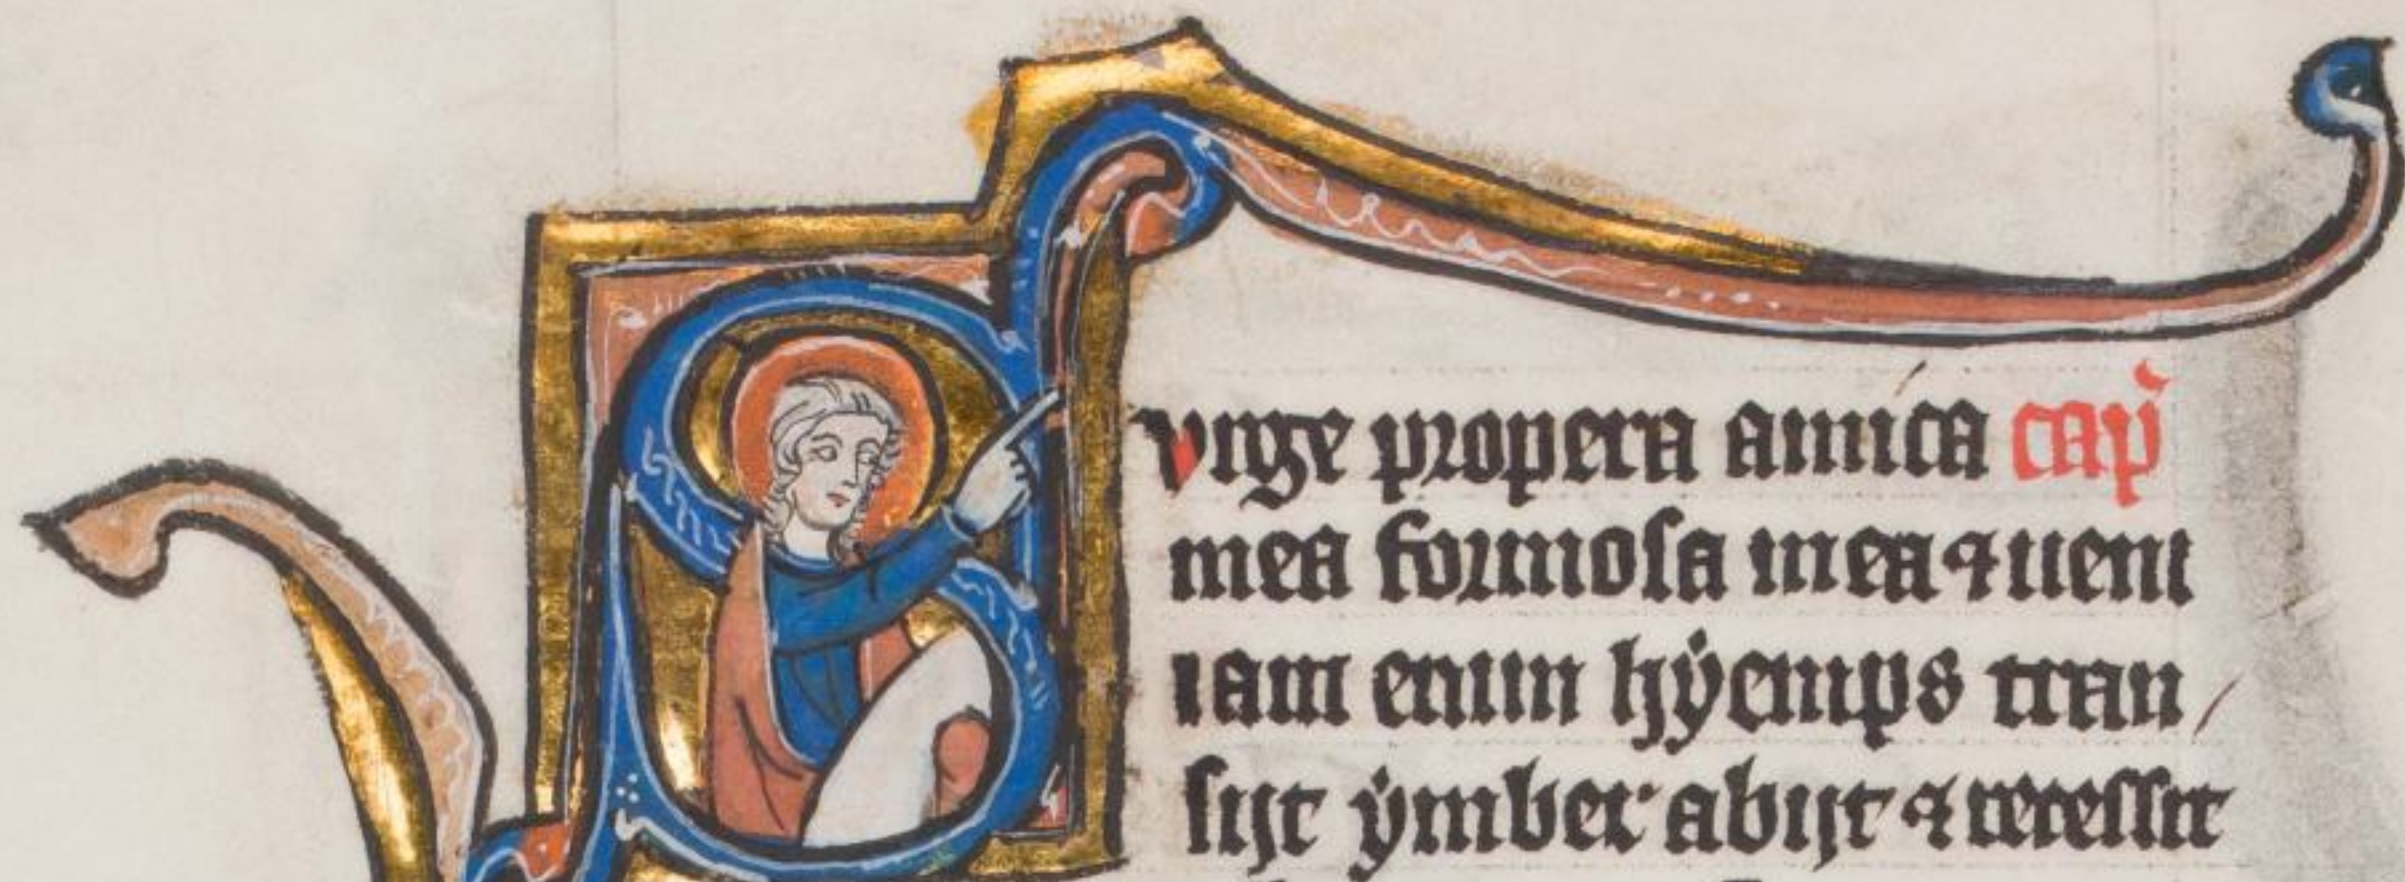 Surge propera amica cap̃
mea formosa mea ⁊ ueni
iam enim hÿemps tran
sijt ÿmber abijt ⁊ recessit